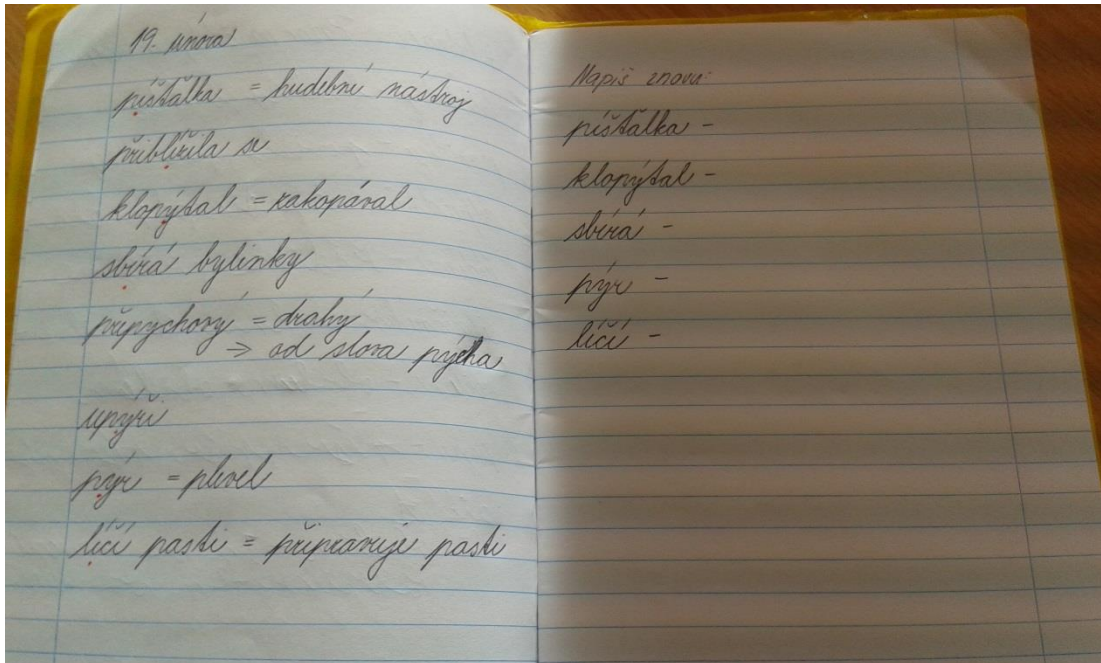 19. února
píšťalka = hudební nástroj
přiblížila se
klopýtal = zakopával
sbírá bylinky
přepychový = drahý
⇒ od slova pýcha
upýří
pýr = plevel
líčí pasti = připravuje pasti
Napiš znovu:
píšťalka -
klopýtal -
sbírá -
pýr -
líčí -